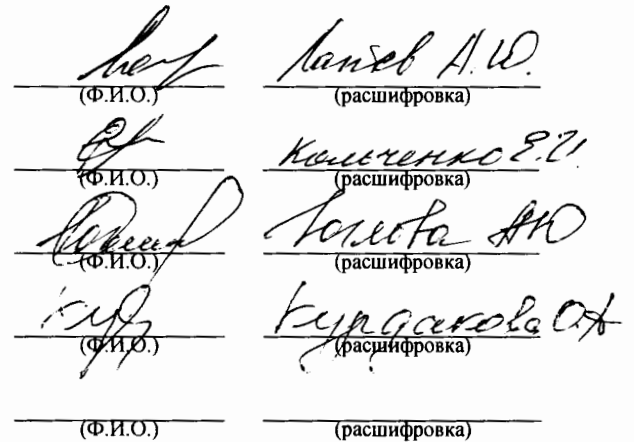 Лаптев А.Ю.
(Ф.И.О.) (расшифровка)
Кольченко Е.И.
(Ф.И.О.) (расшифровка)
АЮ
(Ф.И.О.) (расшифровка)
Курдакова ОА
(Ф.И.О.) (расшифровка)
(Ф.И.О.) (расшифровка)